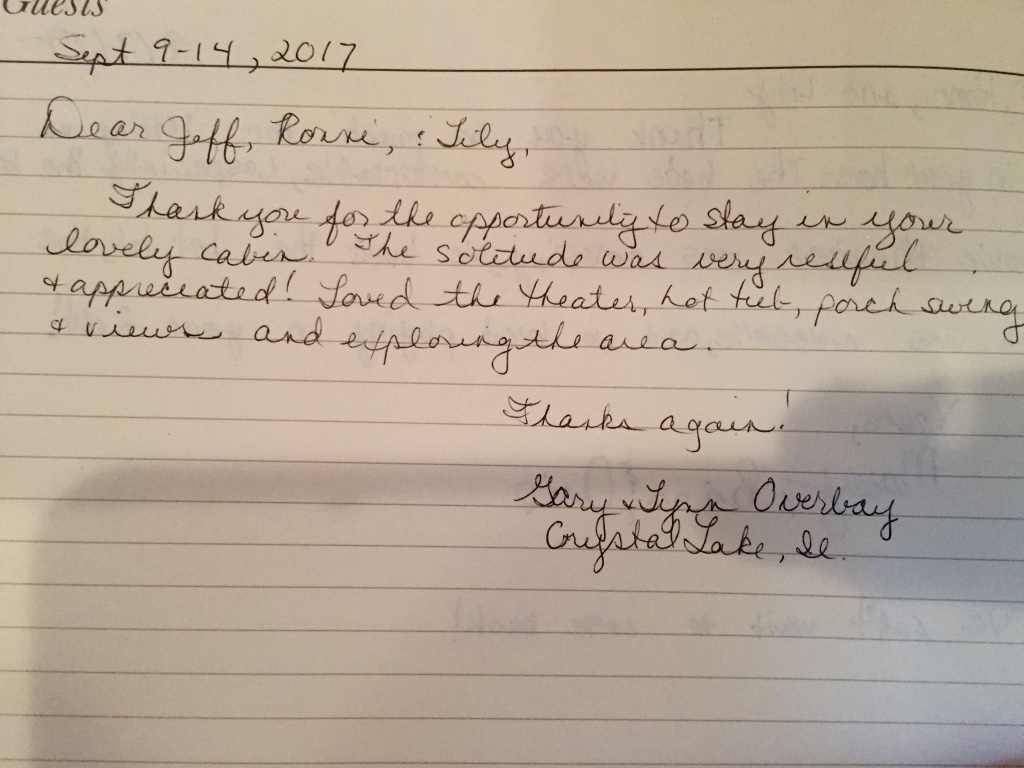 Guests
Sept 9-14, 2017
Dear Jeff, Ronni, & Lily,
Thank you for the opportunity to stay in your
lovely cabin. The solitude was very restful
& appreciated! Loved the theater, hot tub, porch swing
& views and exploring the area.
Thanks again!
Gary & Lynn Overbay
Crystal Lake, Il.